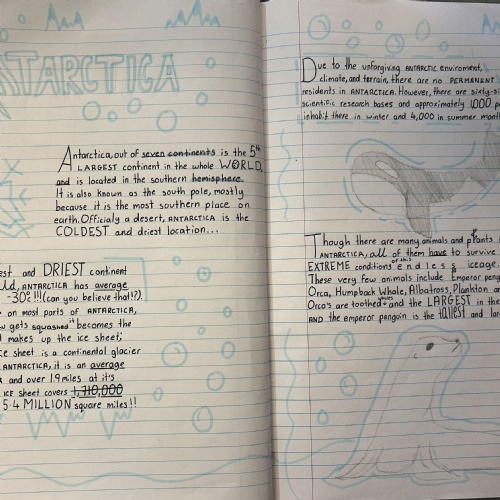 ANTARCTICA
Antarctica, out of seven continents is the 5th
LARGEST continent in the whole WORLD,
and is located in the southern hemisphere.
It is also known as the south pole, mostly
because it is the most southern place on
earth. Officialy a desert, ANTARCTICA is the
COLDEST and driest location...
est and DRIEST continent
ld, ANTARCTICA has average
-30° !!! (can you believe that!?).
on most parts of ANTARCTICA,
w gets squashed it becomes the
makes up the ice sheet;
ce sheet is a continental glacier
ANTARCTICA, it is an average
and over 1.9 miles at it's
ICE sheet covers 1,710,000
5.4 MILLION square miles!!
Due to the unforgiving ANTARCTIC enviroment,
climate, and terrain, there are no PERMANENT
residents in ANTARCTICA. However, there are sixty-si
scientific research bases and approximately 1,000 p
inhabit there in winter and 4,000 in summer month
Though there are many animals and plants
ANTARCTICA, all of them have to survive
EXTREME conditions of this endless iceage.
These very few animals include Emperor peng
Orca, Humpback Whale, Albatross, Plankton a
Orca's are toothed whales and the LARGEST in the
AND the emperor penguin is the tallest and lar